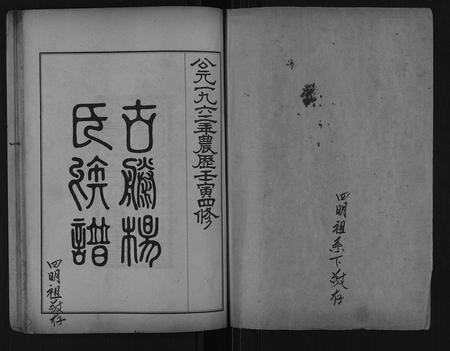 四明祖系下敬存
公元一九六二年農歷壬寅四修
古勝楊
氏族譜
四明祖敬存